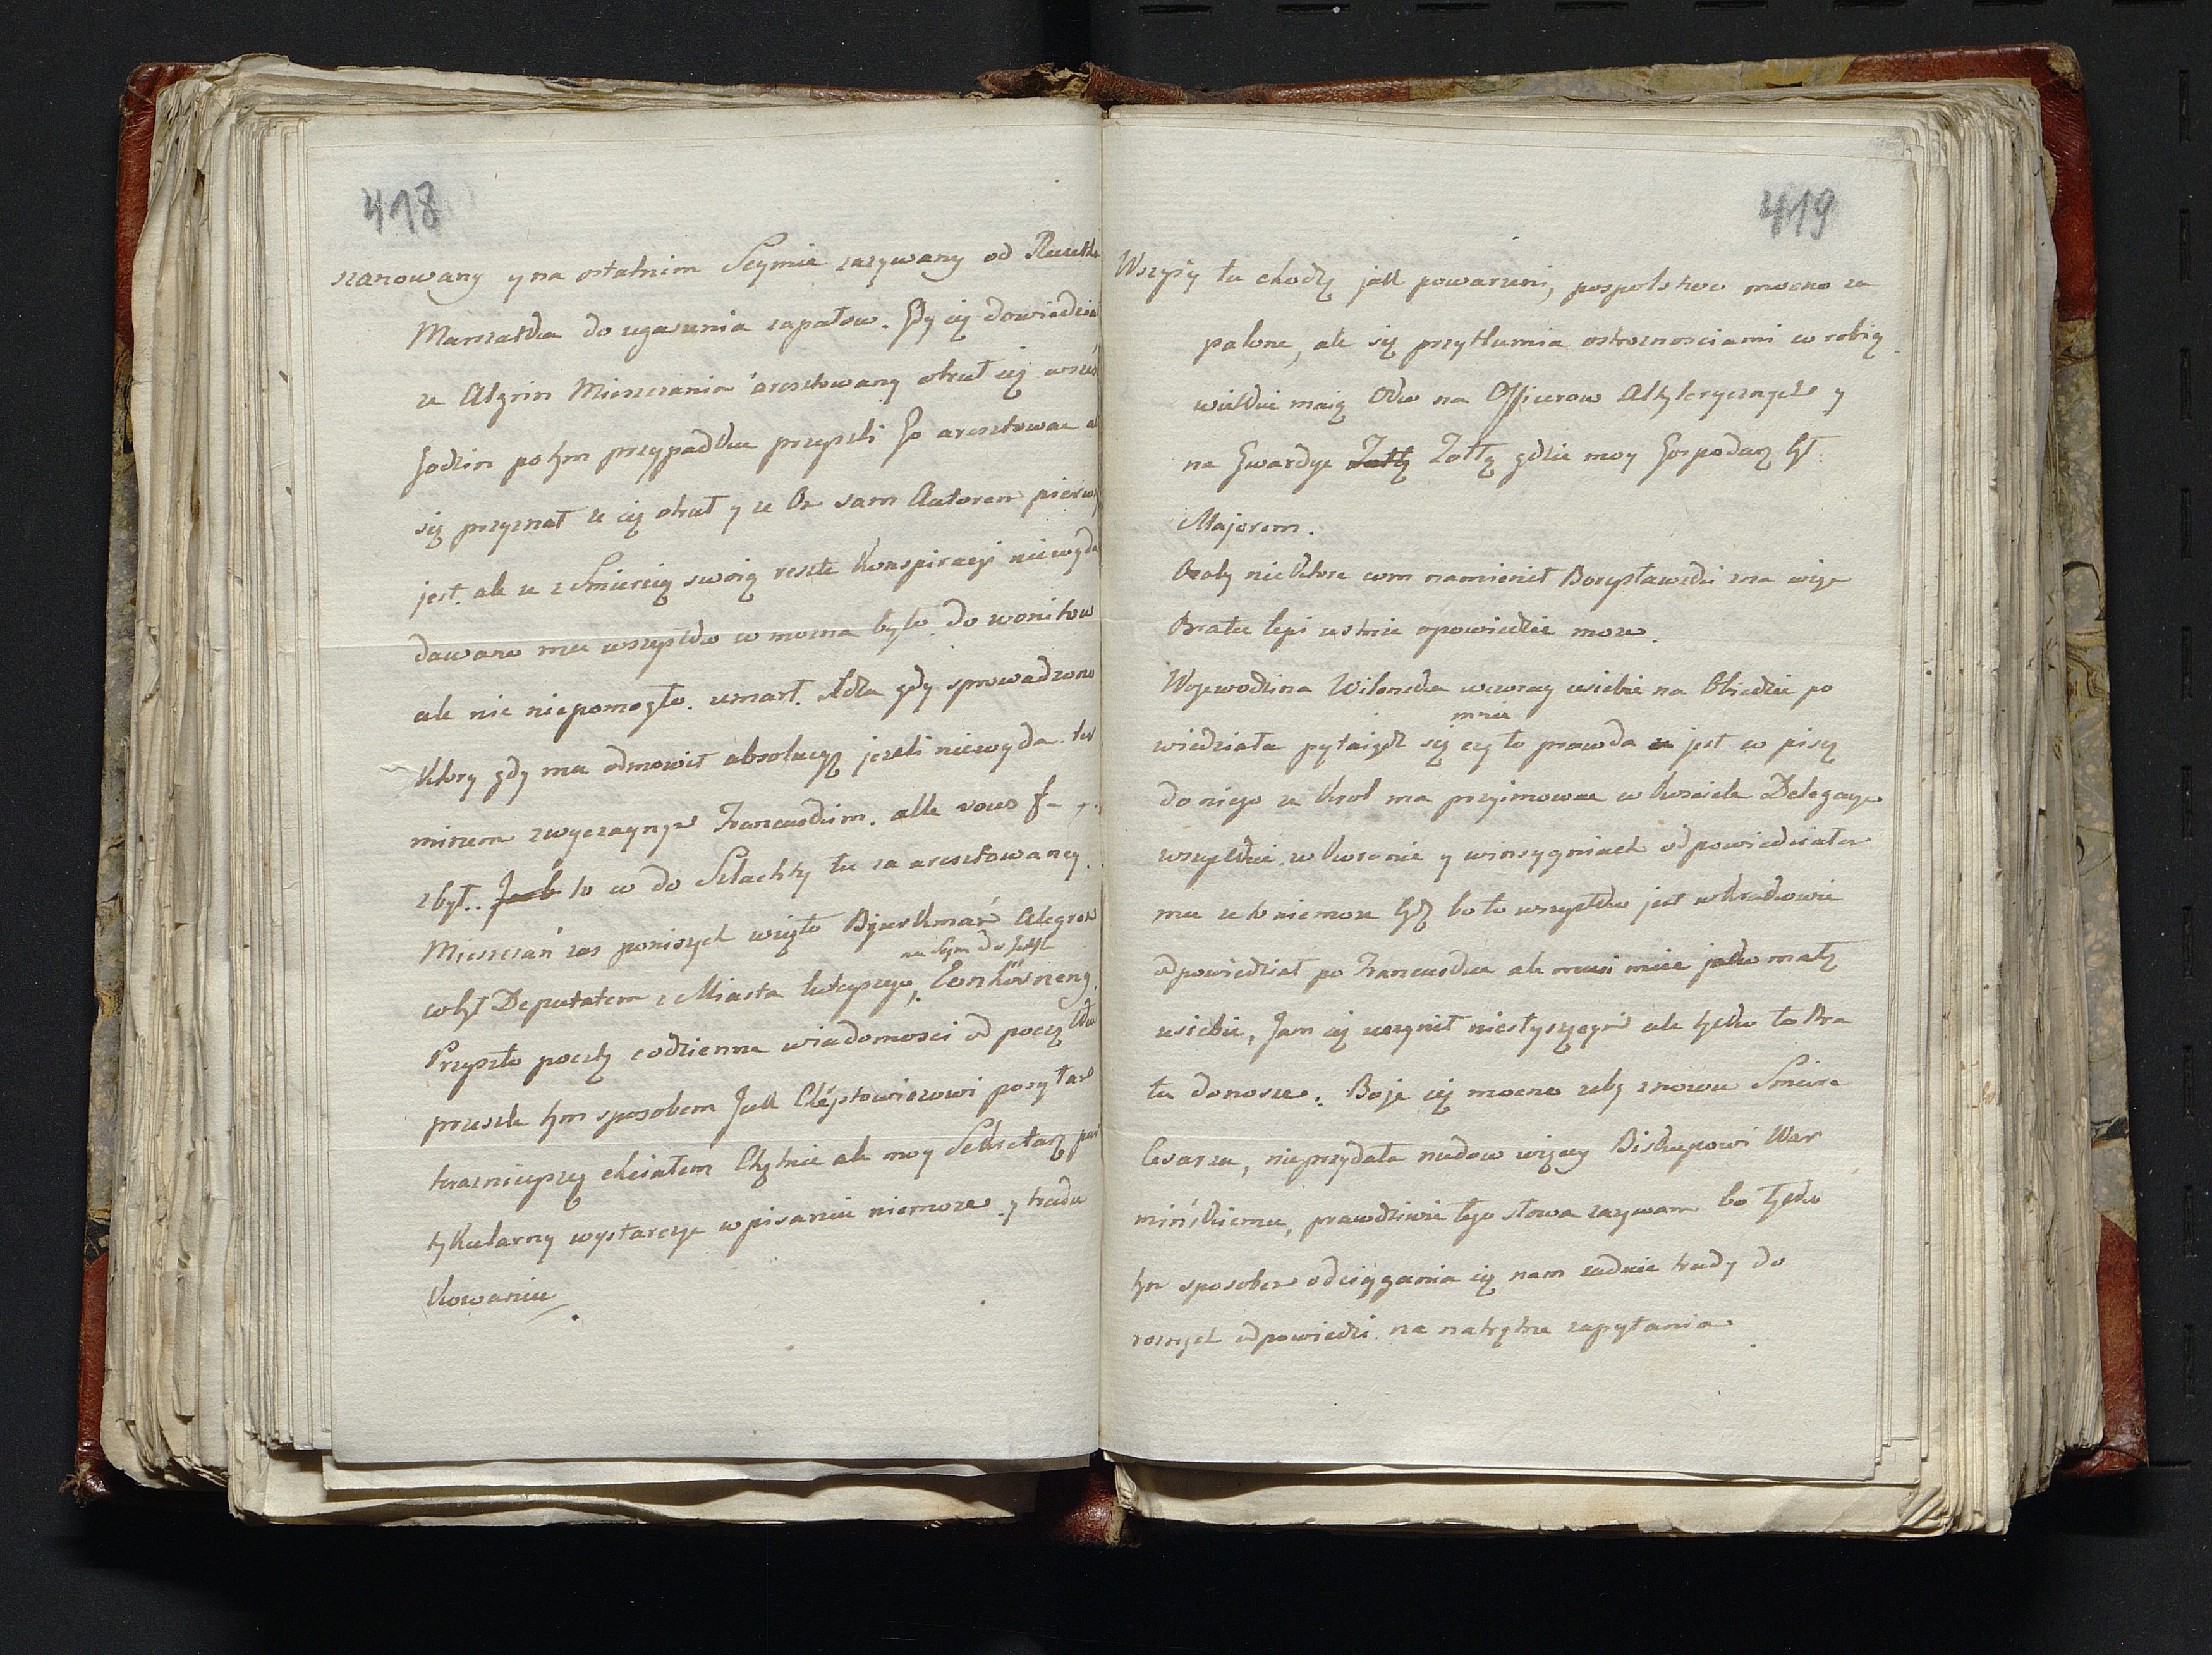 418
szanowany y na ostatnim Seymie zazywany od
Marszałka do ugaszenia zapałow. Gdy się dowiedział
ze Algrin Mieszczanin aresztowany otruł się
godzin po tym przypadku przyszli Go aresztowac
się przyznał ze się otruł y ze On sam Autorem
jest. ale ze z Smiercią swoią reszte Konspiracyi niewyda
dawano mu wszystko co mozna było do womitow
ale nic niepomogło. umarł. Xdza gdy sprowadzono
Ktory gdy mu odmowił absolucyą jezeli niewyda
minem zwyczaynym Francuskim. alle vous f-
zbył.. to co do Szlachty tu za aresztowaney.
Mieszczan zas ponizych wzięto Alegren
co był Deputatem z Miasta tuteyszego,
na Sejm do Gefle
Przyszło poczty codzienne wiadomosci od
przeszłe tym sposobem Jak Chreptowiczowi posyłam
terazniejszey chciałem ale moy Sekretarz
tykularny wystarczye w pisaniu niemoze y tradu
Kowaniu
419
Wszyscy tu chodzą jak powarzeni, pospolstwo mocno za
palone, ale się przytłumia ostroznosciami co robią.
wielkie maią Oko na Officerow Artylerycznych y
na Gwardye Zołtą Zołtą gdzie moy Gospodarz był
Majorem.
niektore com namienił Borysławski zna więc
Bratu lepi ustnie opowiedzie moze.
Wojewodzina Wilenska wczoray usiebie na Obiedzie po
mnie
wiedziała pytaiąc się czy to prawda jest co piszą
do niego ze Krol ma przyimowac w Kosciele Delegacye
wszystkie w Koronie y w insygniach odpowiedziałem
mu ze to niemoze bydz bo to wszystko jest w Krakowie
odpowiedział po Francusku ale musi miec jako małą
usiebie, Jam się uczynił niesłyszącym ale tylko to Bra
tu donosze. Boje się mocno zeby znowu Smierc
Cesarza, nieprzydała nudow więcey Biskupowi War
minskiemu, prawdziwie tego słowa zazywam bo tylko
tym sposobem odciągania się nam zadnie trudy do
roznych odpowiedzi na natrętne zapytania.